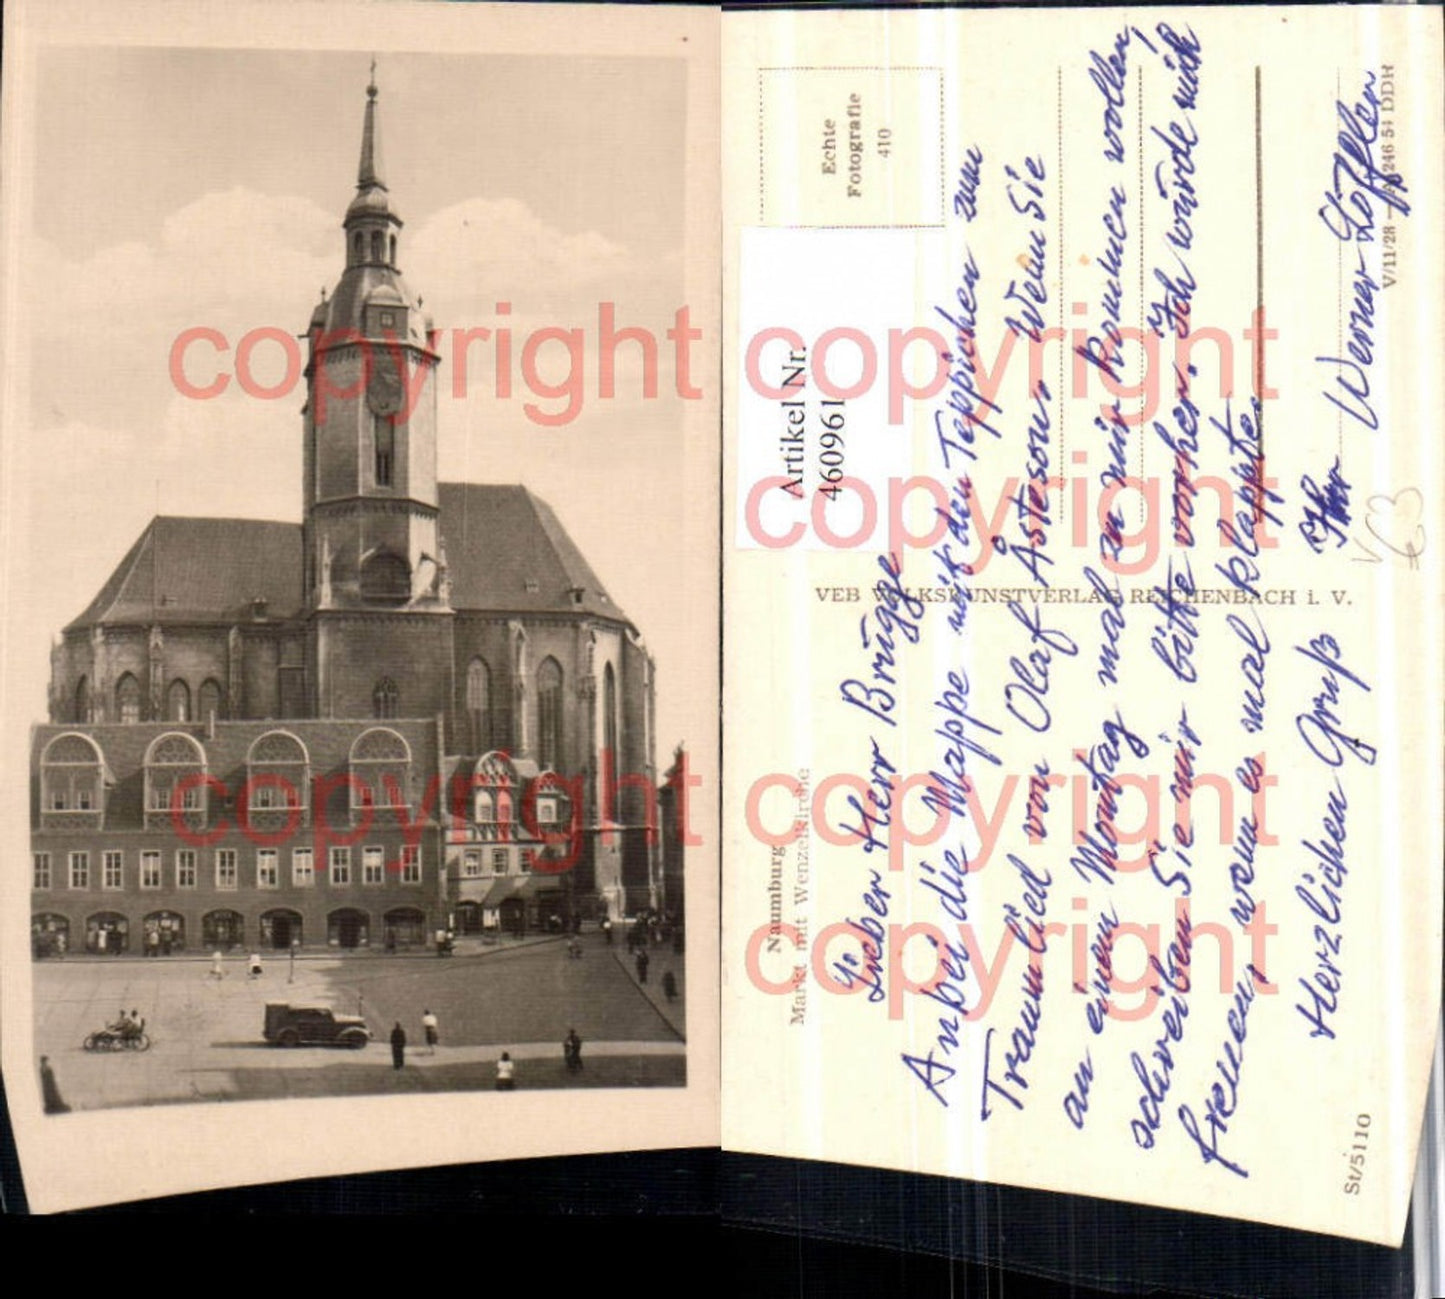 copyright
copyright
copyright
copyright
copyright
copyright
Echte
Fotografie
410
Artikel Nr.
460961
Naumburg
Markt mit Wenzelkirche
VEB VOLKSKUNSTVERLAG REICHENBACH i. V.
Lieber Herr Brügge
Anbei die Mappe mit den Teppichen zum
Traumlied von Olaf Åsteson. Wenn Sie
an einem Montag mal zu mir kommen wollen,
schreiben Sie mir bitte vorher. Ich würde mich
freuen, wenn es mal klappte.
Herzlichen Gruß Ihr Werner Löffler
V/11/28 246 54 DDR
St/5110
€3